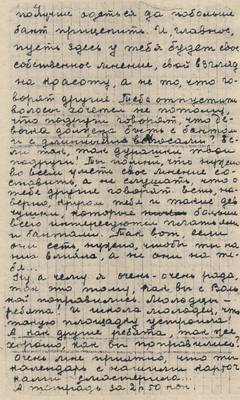 получше одеться да побольше
бант прицепить. И, главное,
пусть здесь у тебя будет свое
собственное мнение, свой взгляд
на красоту, а не то, что го-
ворят другие. Тебе отпустить
волосы хочется не потому,
что подруги говорят, что де-
вочка должна быть с бантом
и с длинными волосами. Ве-
ли так, так думают твои
подруги! Ты помни, что нужно
во всем уметь свое мнение со-
ставить, а не слушать, что о
тебе другие говорят. Ведь, на-
верно, кругом тебя и такие де-
вушки, которые больше
всего интересуются платьями
и бантами. Так вот, если
они есть, нужно, чтобы ты на
них влияла, а не они на те-
бя...
Ну, а чему я очень-очень рада,
так это тому, как вы с Вол-
кой поправились. Молодцы-
ребята! И школа молодец, что
такую площадку устроила.
А как другие ребята, так же
хорошо, как вы поправились?
Очень мне приятно, что ты
календарь с нашими карточ-
ками смастерила...
А тетрадь за 2 р 50 коп.